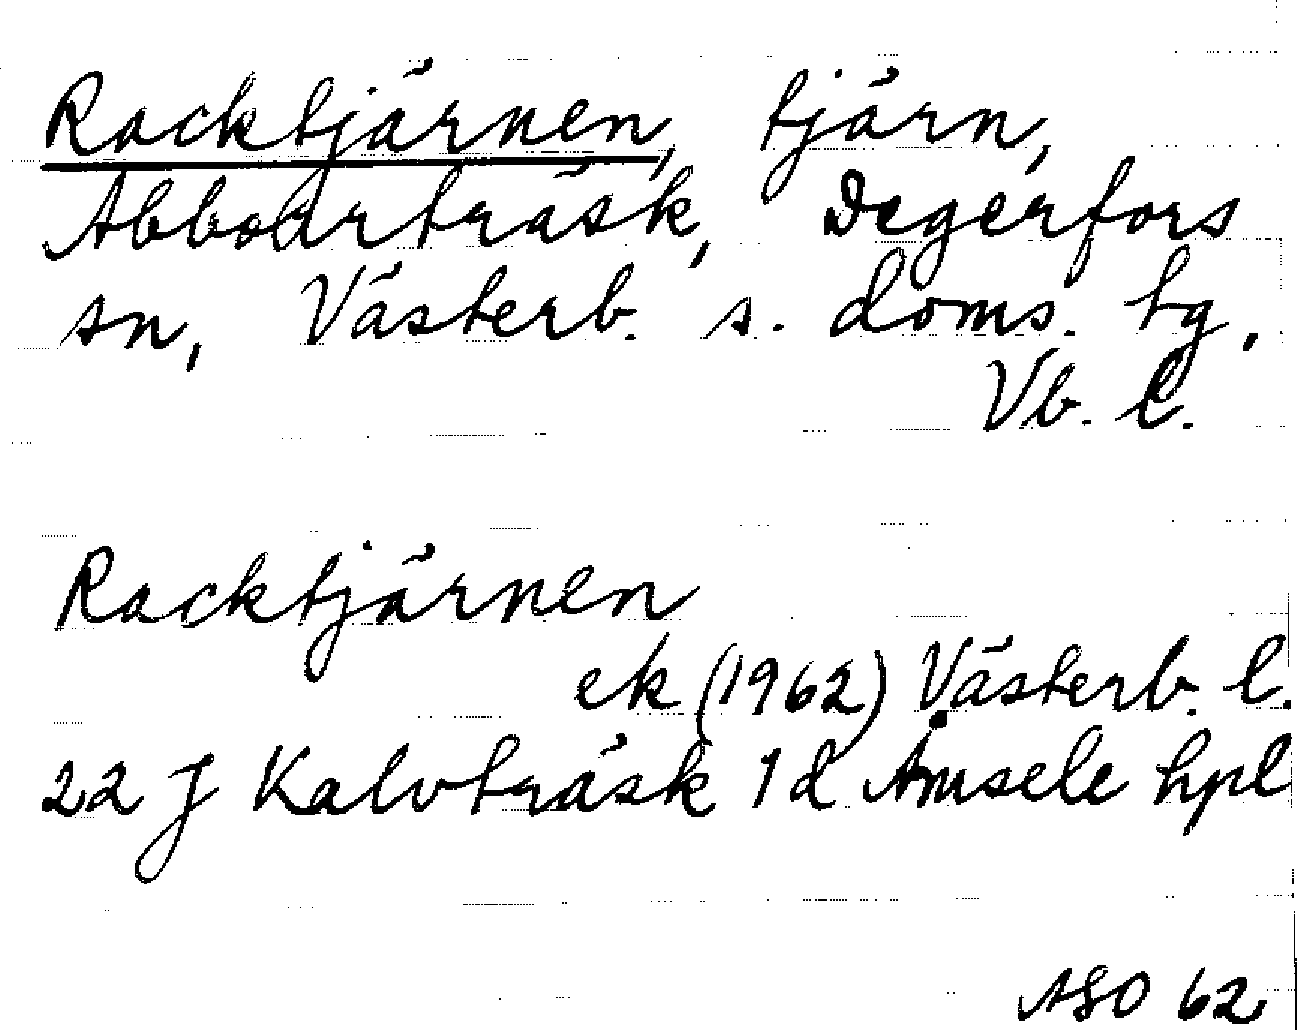 Racktjärnen, tjärn,
Abborrträsk, Degerfors
sn, Västerb. s. doms. tg,
Vb. l.
Racktjärnen
ek (1962) Västerb. l.
22 J Kalvträsk 1 d Åmsele hpl
ASO 62